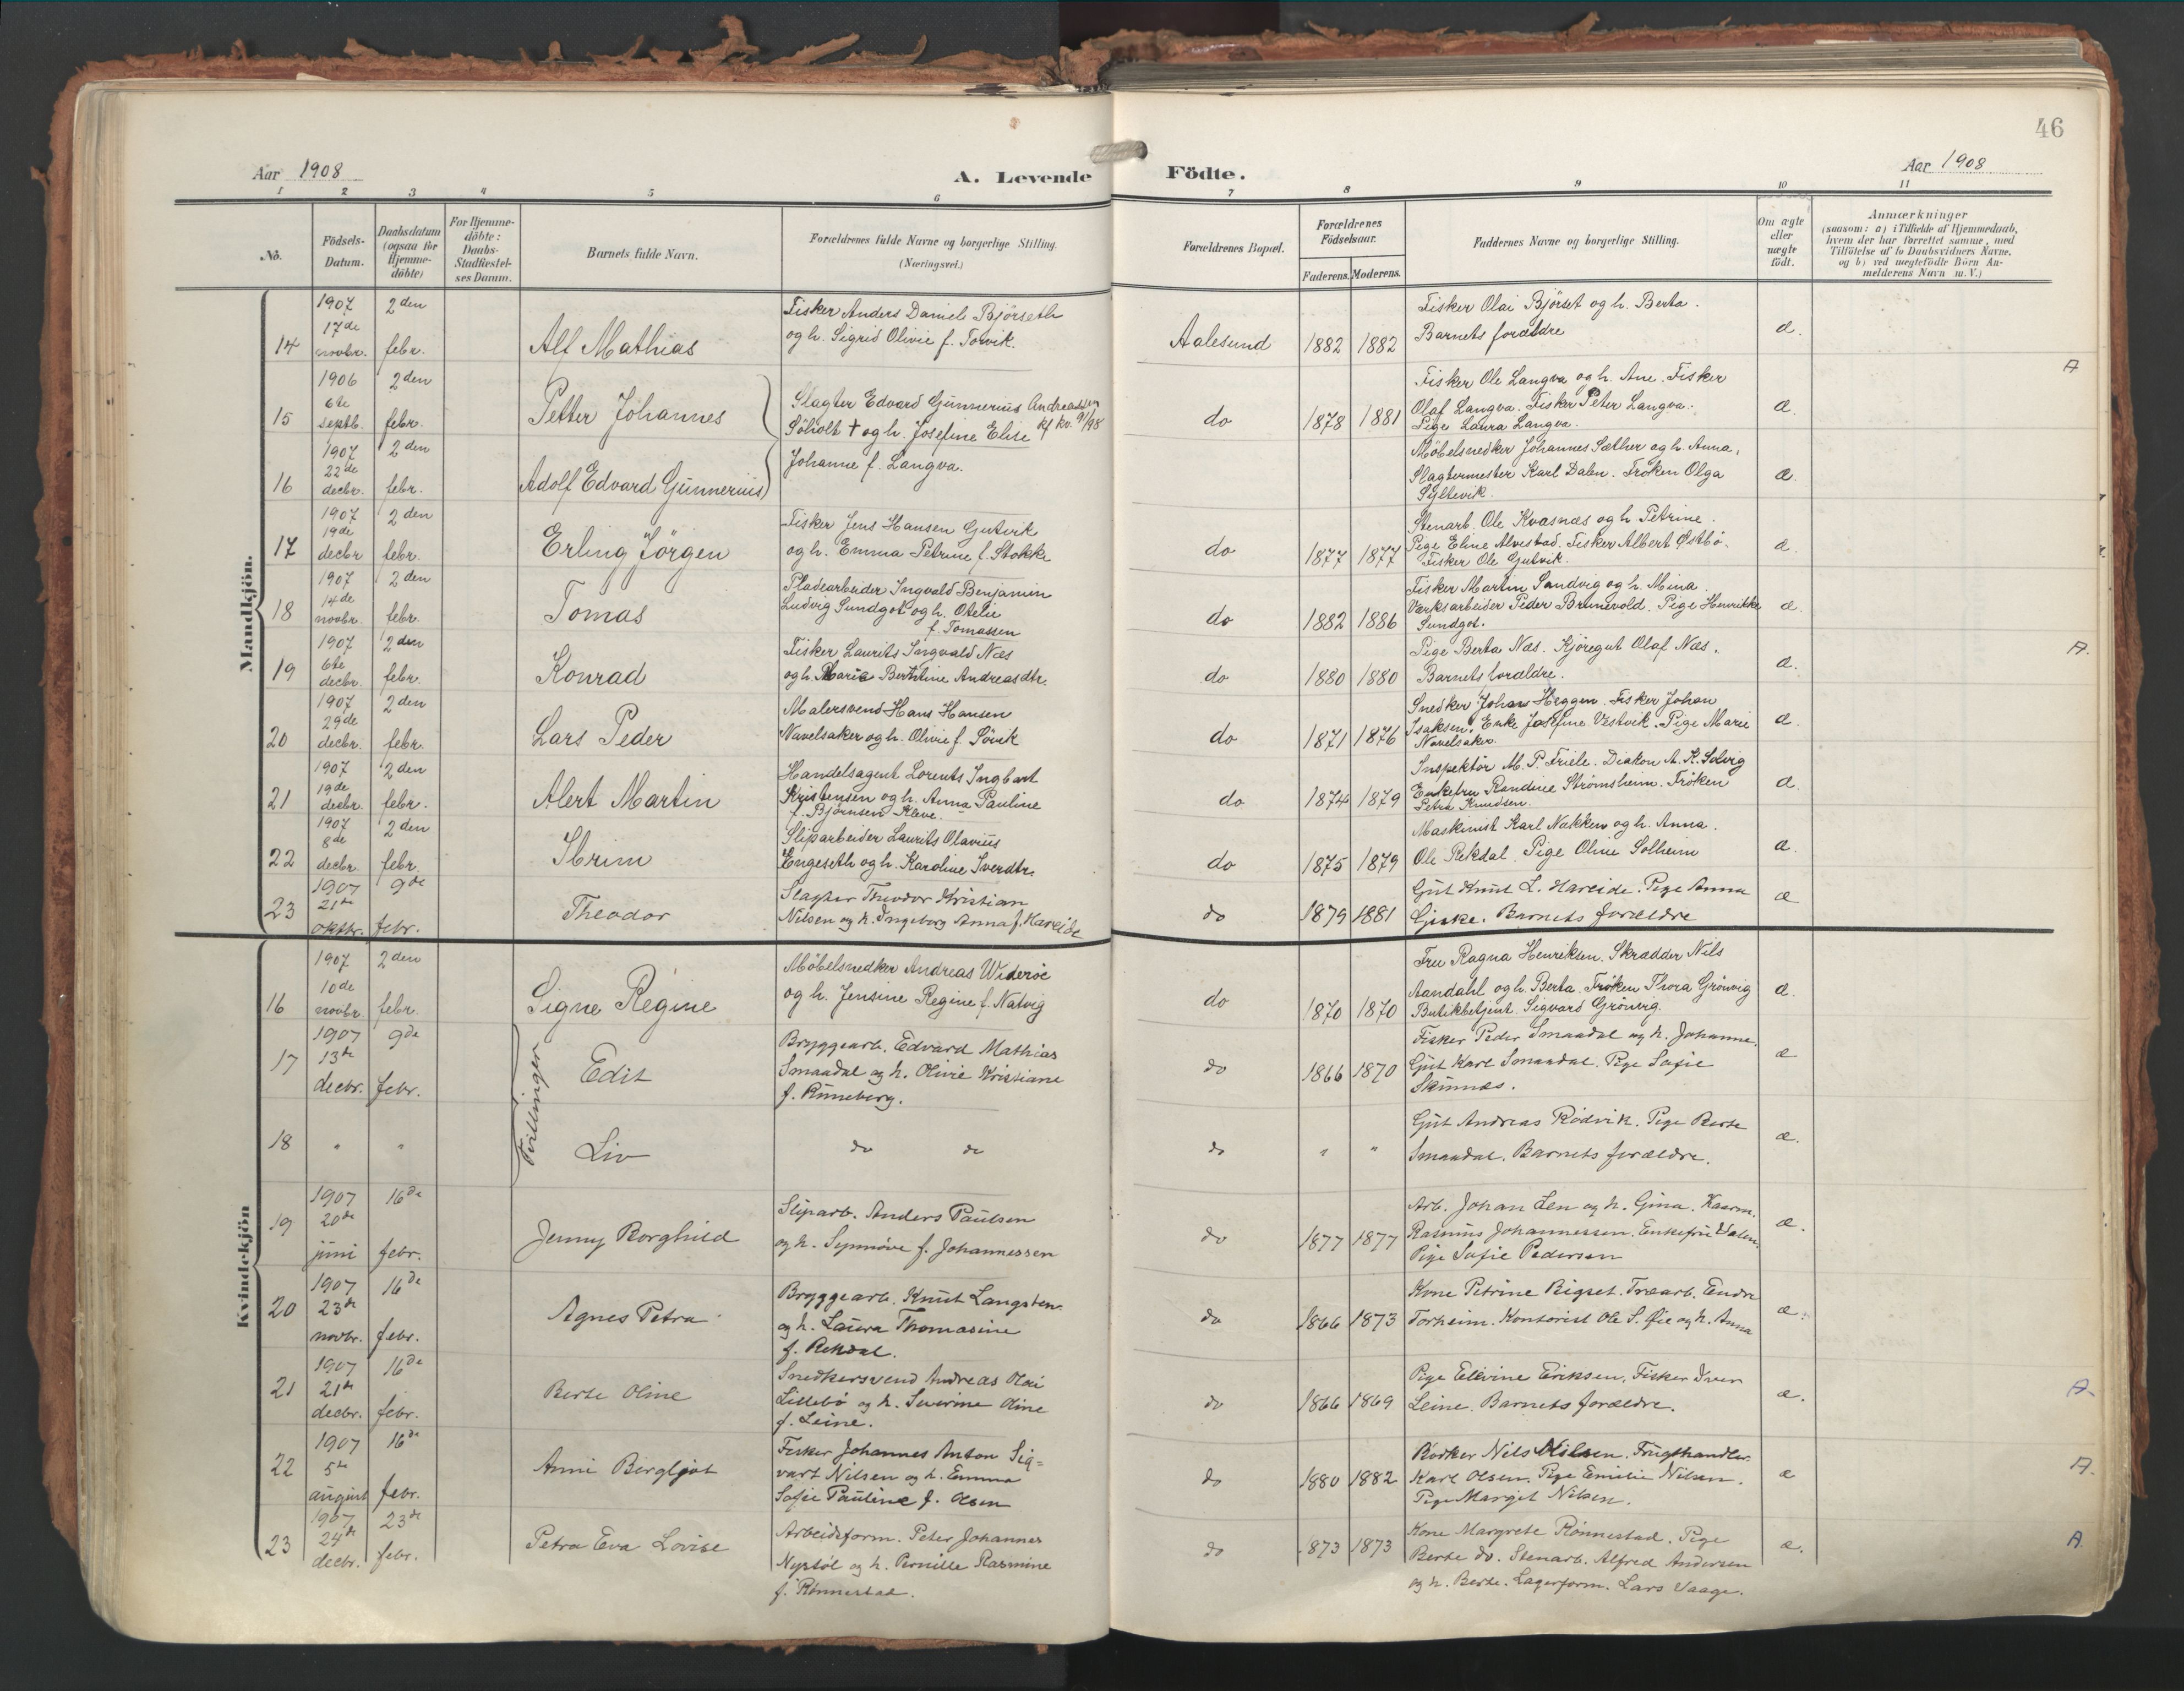 46
Aar 1908
A. Levende Födte.
Aar 1908
1 2 3 4 5 6 7 8 9 10 11
No.
Födsels-Datum.
Daabsdatum (ogsaa for Hjemme-döbte)
For Hjemme-döbte: Daabs-Stadfæstel-ses Datum.
Barnets fulde Navn.
Forældrenes fulde Navne og borgerlige Stilling. (Næringsvei.)
Forældrenes Bopæl.
Forældrenes Födselsaar.
Faderens. Moderens.
Faddernes Navne og borgerlige Stilling.
Om ægte eller uægte födt.
Anmærkninger
(saasom: a) i Tilfælde af Hjemmedaab,
hvem der har forrettet samme, med
Tilföielse af to Daabsvidners Navne.
og b) ved uægtefödte Börn An-
melderens Navn m. V.)
Mandkjön.
14 1907 17de novbr. 2den febr. Alf Mathias
Fisker Anders Daniels Björseth
og h. Sigrid Olivie f. Torvik.
Aalesund 1882 1882
Fisker Olai Björset og h. Berta.
Barnets forældre
æ.
A
15 1906 6te septb. 2den febr. Petter Johannes
Slagter Edvard Gunnerius Andreassen
Söholt † og h. Josefine Elise
do 1878 1881
Fisker Ole Langva og h. Ane. Fisker
Olaf Langva. Fisker Peter Langva.
Pige Laura Langva.
æ.
16 1907 22de decbr. 2den febr. Adolf Edvard Gunnerius
Johanne f. Langva.
Möbelsnedker Johannes Sæther og h. Anna,
Slagtermester Karl Dalen. Fröken Olga
Syltevik.
æ.
17 1907 19de decbr 2den febr. Erling Jörgen
Fisker Jens Hansen Gutvik
og h. Emma Petrine f. Stokke
do 1877 1877
Stenarb. Ole Kvasnæs og h. Petrine.
Pige Eline Alvestad. Fisker Albert Østbö.
Fisker Ole Gutvik.
æ.
18 1907 14de novbr. 2den febr. Tomas
Pladearbeider Ingvald Benjamin
Ludvig Sundgot og h. Otelie
f. Tomassen
do 1882 1886
Fisker Martin Sandvig og h. Mina.
Værksarbeider Peder Brunevold. Pige Henrikke
Sundgot.
æ.
19 1907 6te decbr. 2den febr. Konrad
Fisker Laurits Ingvald Næs
og h. Maria Berntine Andreasdtr.
do 1880 1880
Pige Berta Næs. Kjöregut Olaf Næs.
Barnets forældre.
æ.
A.
20 1907 29de decbr. 2den febr. Lars Peder
Malersvend Hans Hansen
Navelsaker og h. Olivie f. Sövik
do 1871 1876
Snedker Johan Heggen. Fisker Johan
Isaksen. Enke Josefine Vestvik. Pige Marie
Navelsaker.
æ.
21 1907 19de decbr. 2den febr. Alert Martin
Handelsagent Lorents Ingbart
Kristensen og h. Anna Pauline
f. Björnsen Kleve.
do 1874 1879
Inspektör M. P. Friele. Diakon A. K. Solvig
Enkefru Randine Strömsheim. Fröken
Petra Knudsen.
æ.
22 1907 8de decbr. 2den febr. Ibrim
Sliparbeider Laurits Olavius
Engeseth og h. Karoline Iverdtr.
do 1875 1879
Maskinist Karl Nakken og h. Anna.
Ole Rekdal. Pige Oline Solheim
æ.
23 1907 21de oktbr. 9de febr. Theodor
Slagter Theodor Kristian
Nilsen og h. Ingeborg Anna f. Hareide
do 1879 1881
Gut Knut L. Hareide. Pige Anna
Giske. Barnets forældre
æ
Kvindekjön
16 1907 10de novbr. 2den febr. Signe Regine
Möbelsnedker Andreas Wideröe
og h. Jensine Regine f. Natvig
do 1870 1870
Fru Ragna Henriksen. Skrædder Nils
Aandahl og h. Berta. Fröken Thora Grönvig
Butikbetjent. Sigvard Grönvig.
æ.
17 1907 13de decbr. 9de febr. Tvillinger Edit
Bryggearb. Edvard Mathias
Smaadal og h. Olivie Kristiane
f. Runeberg.
do 1866 1870
Fisker Peder Smaadal og h. Johanne.
Gut Karl Smaadal. Pige Sofie
Skinnes.
æ
18 " " Liv
do do
do " "
Gut Andreas Rödvik. Pige Berte
Smaadal. Barnets forældre.
æ.
19 1907 20de juni 16de febr. Jenny Borghild
Sliparb. Anders Paulsen
og h. Synnöve f. Johannessen
do 1877 1877
Arb. Johan Len og h. Gina.
Rasmus Johannessen. Enkefru Dalen.
Pige Sofie Pedersen
æ.
20 1907 23de novbr. 16de febr. Agnes Petra
Bryggearb. Knut Langsten
og h. Laura Thomasine
f. Rekdal.
do 1866 1873
Kone Petrine Rigset. Træarb. Endre
Torheim. Kontorist Ole S. Øie og h. Anna
æ.
21 1907 21de decbr. 16de febr. Berte Oline
Snedkersvend Andreas Olai
Lillebö og h. Severine Oline
f. Leine.
do 1866 1869
Pige Elevine Eriksen. Fisker Iver
Leine. Barnets forældre.
æ.
A.
22 1907 5te august 16de febr. Anni Bergljot
Fisker Johannes Anton Sig=
vart Nilsen og h. Emma
Sofie Pauline f. Olsen
do 1880 1882
Bödker Nils Nilsen. Frugthandler
Karl Olsen. Pige Emilie Nilsen.
Pige Margit Nilsen.
æ
A.
23 1907 24de decbr. 23de febr. Petra Eva Lovise
Arbeidsform. Peter Johannes
Nyrstöl og h. Pernille Rasmine
f. Rönnestad.
do 1873 1873
Kone Margrete Rönnestad. Pige
Berte do. Stenarb. Alfred Andersen
og h. Berte. Lagerform. Lars Vaage.
æ.
A.